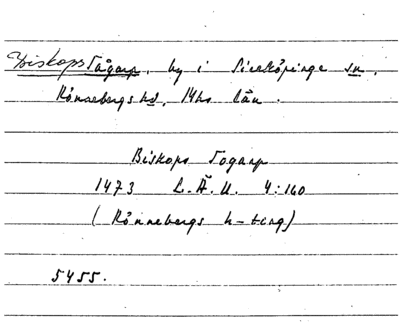 Biskopstågarp, by i Sireköpinge sn,
Rönnebergs hd, Mhs län.
Biskops Togarp
1473 L.Ä.U. 4:160
(Rönnebergs h-ting)
5455.